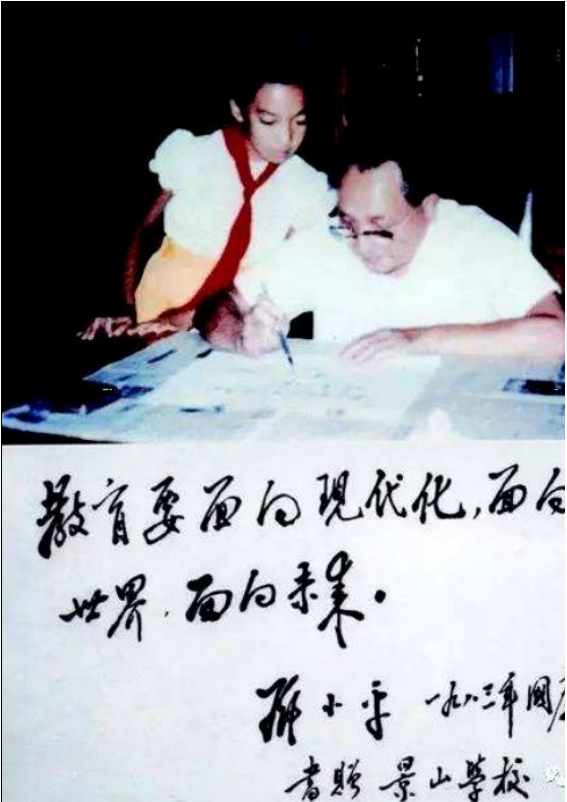 教育要面向現代化,面向
世界.面向未来。
邓小平 一九八三年國庆
書贈 景山學校